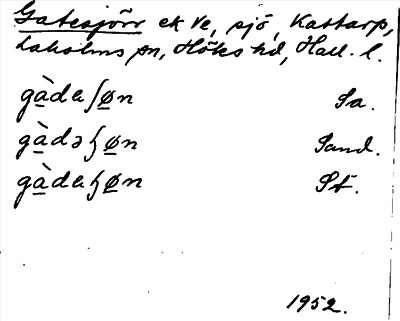 Gatesjönn ek Ve, sjö, Kattarp,
Laholms sn, Höks hd, Hall. l.
gà̱daʃø̱n Sa.
gà̱dəɧø̱n Sand.
gà̱daɧø̱n St.
1952.